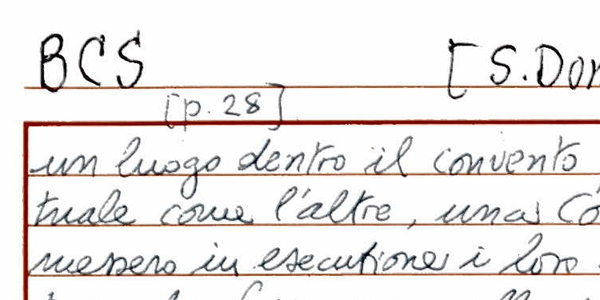 BCS [S.Dom
[p. 28]
un luogo dentro il convento
tuale come l'altre, una Co
messero in esecutione i loro